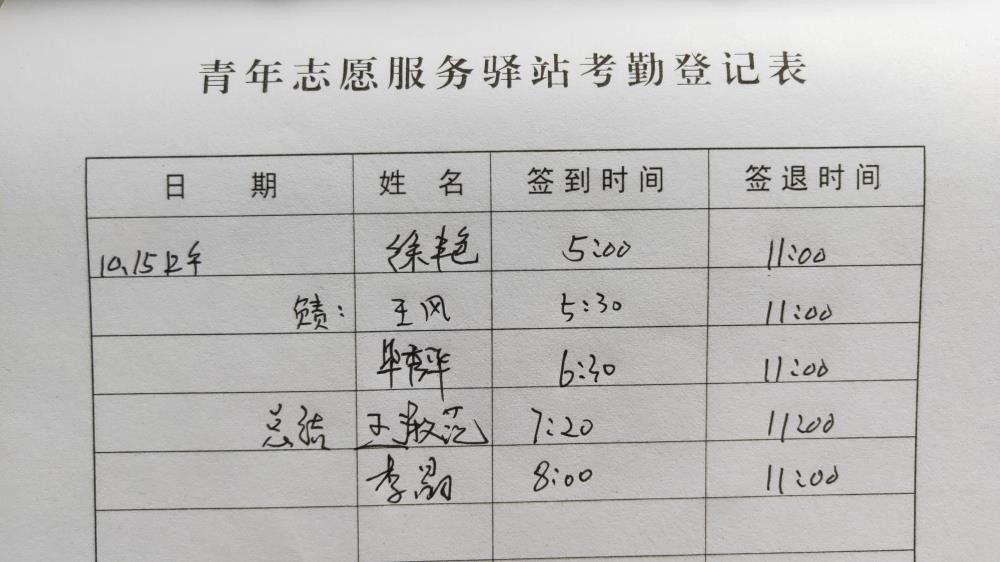 青年志愿服务驿站考勤登记表
日 期 姓 名 签到时间 签退时间
10.15上午 徐丰艳 5:00 11:00
王风 5:30 11:00
6:30 11:00
总结 王 7:20 11:00
李 8:00 11:00